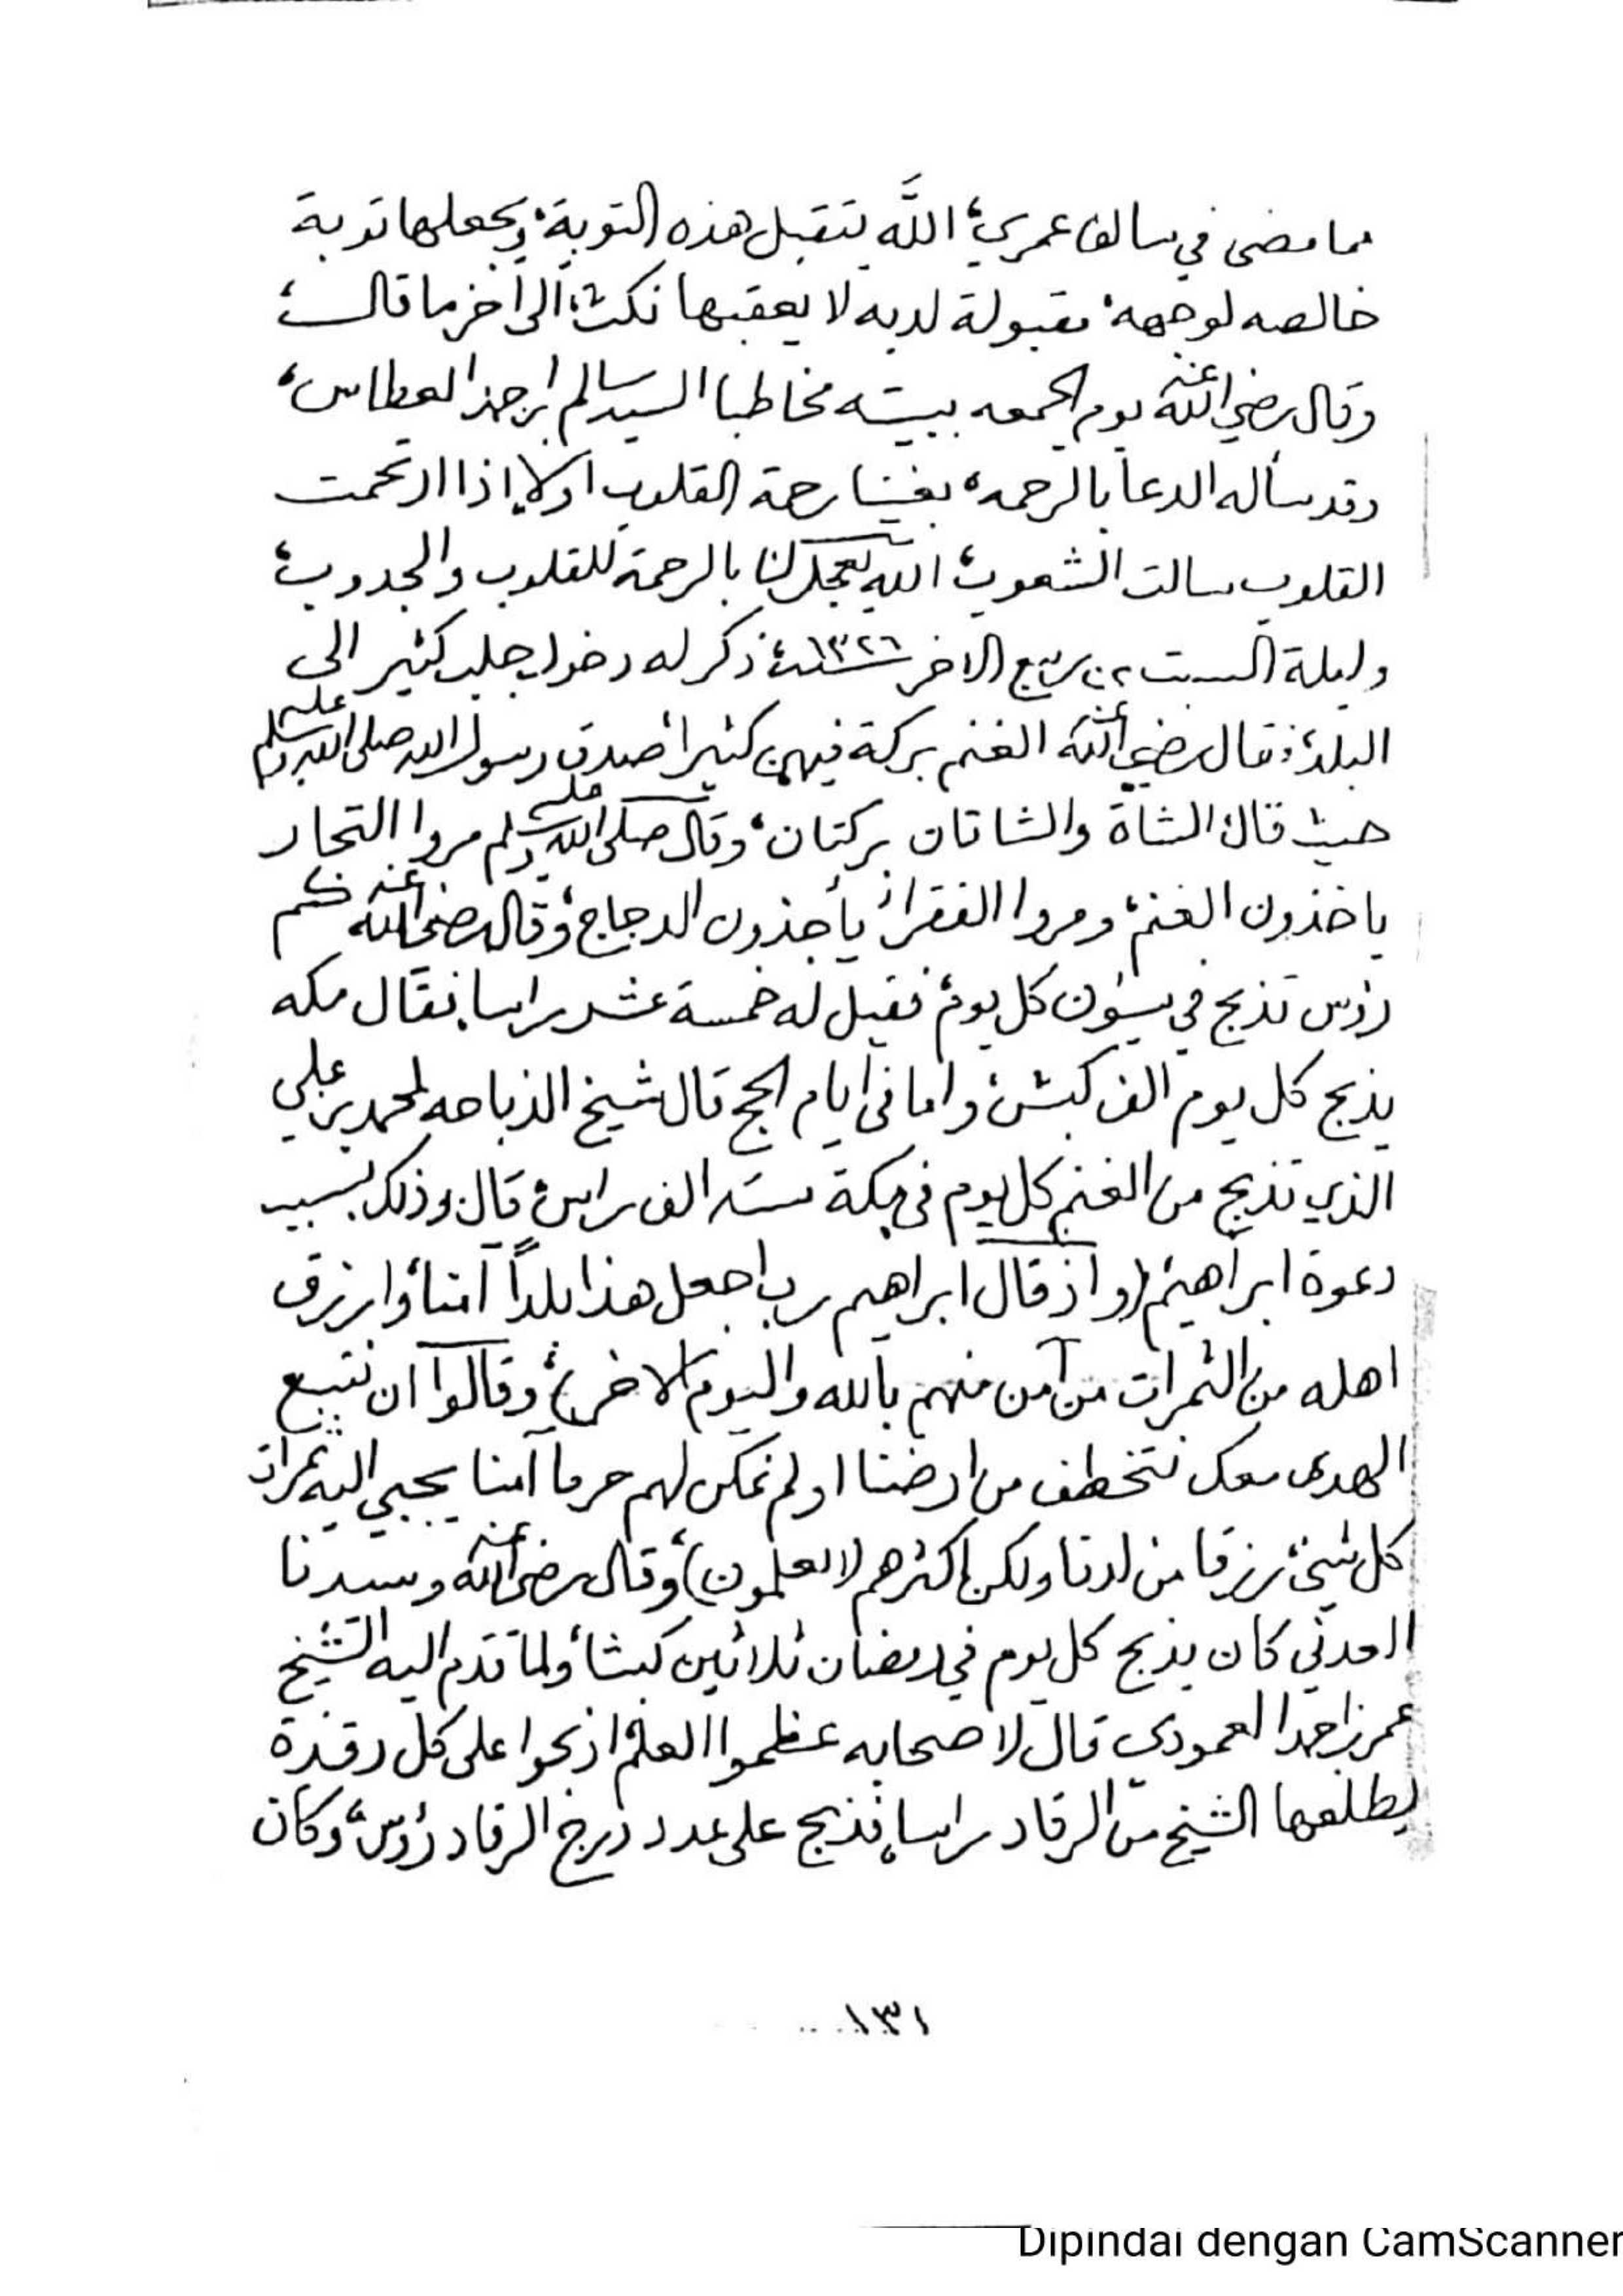 مما مضى في سالف عمري، الله يتقبل هذه التوبة، ويجعلها توبة
خالصه لوجهه، مقبولة لديه لا يعقبها نكث، الى آخر ما قال،
وقال رضي الله عنه يوم الجمعه ببيته مخاطبا السيد سالم بن احمد العطاس،
وقد سأله الدعا بالرحمه، بغينا رحمة القلوب اولا، إذا ارتحمت
القلوب سالت الشعوب، الله يعجل لنا بالرحمة للقلوب والجدوب،
وليلة السبت ربيع الاخر سنة ١٣٢٦، ذكر له دخول جلب كثير الى
البلد، فقال رضي الله عنه الغنم بركة فيهن كثيرا، صدق رسول الله صلى الله عليه وسلم
حيث قال، الشاة والشاتان بركتان، وقال صلى الله عليه وسلم مروا التجار
ياخذون الغنم، ومروا الفقراء يأخذون الدجاج، وقال رضي الله عنه كم
رؤس تذبح في سيؤن كل يوم، فقيل له خمسة عشر راسا، فقال مكه
يذبح كل يوم الف كبش، واما في أيام الحج قال شيخ الذباحه لمحمد بن علي
الذي تذبح من الغنم كل يوم في مكة سته الف راس، قال، وذلك بسبب
دعوة ابراهيم، (و اذ قال ابراهيم رب اجعل هذا بلداً آمنا، وارزق
اهله من الثمرات من آمن منهم بالله واليوم الاخر)، وقالوا ان نتبع
الهدى معك نتخطف من ارضنا او لم نمكن لهم حرما آمنا يجبي اليه ثمرات
كل شيئ رزقا من لدنا ولكن اكثرهم لا يعلمون)، وقال رضي الله عنه وسيدنا
العدني كان يذبح كل يوم في رمضان ثلاثين كبشا، ولما قدم اليه الشيخ
عمر بن احمد العمودي قال لاصحابه عظموا العلم، اذبحوا على كل رقدة
يطلعها الشيخ من الرقاد راسا، فذبح على عدد درج الرقاد رؤس، وكان
١٣١
Dipindai dengan CamScanner